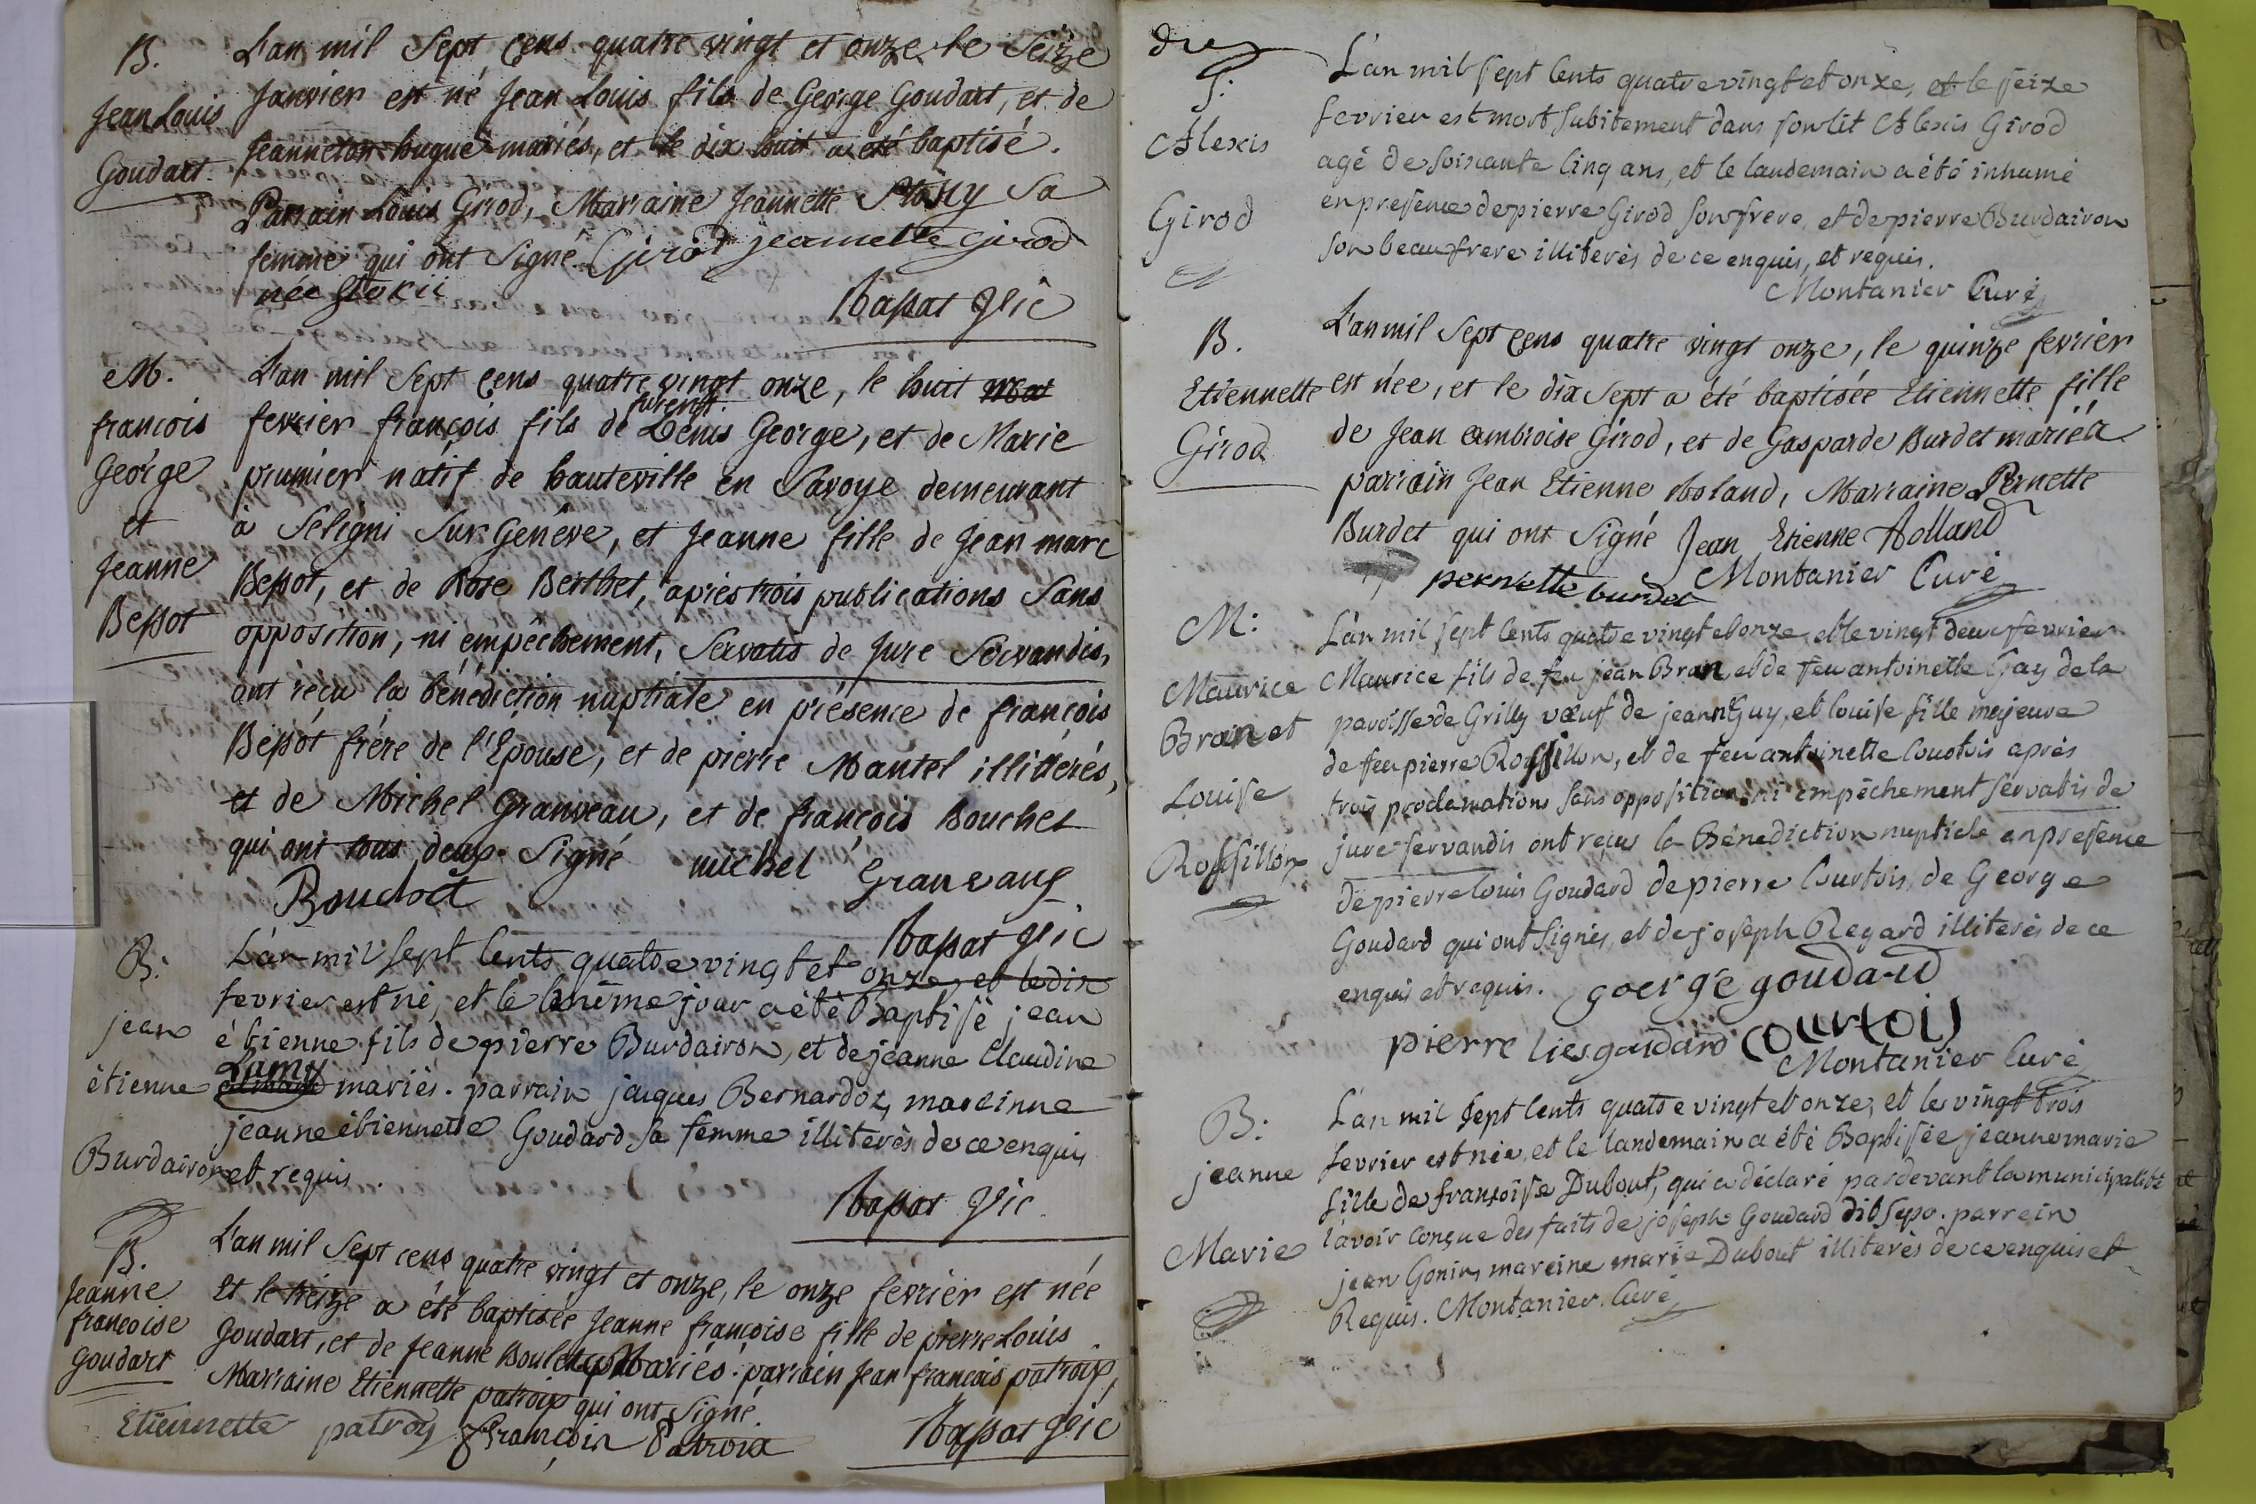 B.
Jean Louis
Goudart
L'an mil Sept cens quatre vingt et onze le Seize
Janvier est né Jean Louis fils de George Goudart, et de
Jeanneton hugue mariés, et le dix huit a été baptisé.
Parrain Louis Girod, Marraine Jeannette Stoky Sa
femme qui ont Signé. Girod jeannette girod
née Stokii
Bassat Vic
M.
françois
George
et
Jeanne
Bessot
L'an mil Sept cens quatre vingt onze, le huit
fevrier françois fils de Denis George, et de Marie
prumier natif de hauteville en Savoye demeurant
à Seligni Sur Genève, et Jeanne fille de Jean marc
Bessot, et de Rose Berthet, après trois publications Sans
opposition, ni empêchement, Servatis de Jure Servandis,
ont réçu la bénédiction nuptiale en présence de françois
Bessot frére de l'Epouse, et de pierre Mantel illitérés,
et de Michel Granveau, et de françois Bouchet
qui ont tous deux Signé michel Granvaux
Bouchet
Bassat Vic
B:
jean
étienne
Burdairon
L'an mil sept Cents quatre vingt et onze, et le dix
fevrier est né, et le même jour a été Baptisé jean
étienne fils de pierre Burdairon, et de jeanne Claudine
Lamy mariés. parrain jaques Bernardoz, mareinne
jeanne étiennette Goudard Sa femme illiterès de ce enquis
et requis.
Bassat Vic.
B.
Jeanne
françoise
Goudart
L'an mil Sept cens quatre vingt et onze, le onze février est née
Et le treize a été baptisée Jeanne françoise fille de pierre Louis
Goudart, et de Jeanne Mariés. parrain Jean françois patroix,
Marraine Etiennette patroix qui ont Signé.
Etiennette patroix françois Patroix
Bassat Vic
dix
S:
Alexis
Girod
L'an mil sept Cents quatre vingt et onze, et le seize
fevrier est mort Subitement dans son lit Alexis Girod
agé de Soixante Cinq ans, et le landemain a été inhumé
en presence de pierre Girod son frere, et de pierre Burdairon
son beaufrere illiterès de ce enquis, et requis.
Montanier Curé
B.
Etiennette
Girod
L'an mil Sept cens quatre vingt onze, le quinze fevrier
est née, et le dix Sept a été baptisée Etiennette fille
de Jean ambroise Girod, et de Gasparde Burdet mariés
parrain Jean Etienne Roland, Marraine Pernette
Burdet qui ont Signé Jean Etienne Rolland
pernette burdet Montanier Curé
M:
Maurice
Bran et
Louise
Rossillon
L'an mil sept Cents quatre vingt et onze, et le vingt deux fevrier
Maurice fils de feu jean Bran, et de feu antoinette Gay de la
paroisse de Grilly vœuf de jeanne Guy, et louise fille majeure
de feu pierre Rossillon, et de feu antoinette Courtois après
trois proclamations sans opposition ni empêchement servatis de
jure servandis ont reçus la Bénédiction nuptiale en presence
de pierre louis Goudard de pierre Courtois, de George
Goudard qui ont signés, et de joseph Regard illiterés de ce
enquis et requis. goerge goudard
pierre goudard courtois
Montanier Curé
B:
jeanne
Marie
L'an mil sept Cents quatre vingt et onze, et le vingt trois
fevrier est née, et le landemain a été Baptisée jeanne marie
fille de françoise Dubout, qui a déclaré pardevant la municipalité
l'avoir Conçue des faits de joseph Goudard dit sepo. parrein
jean Gonin, mareine marie Dubout illiterés de ce enquis et
Requis. Montanier Curé